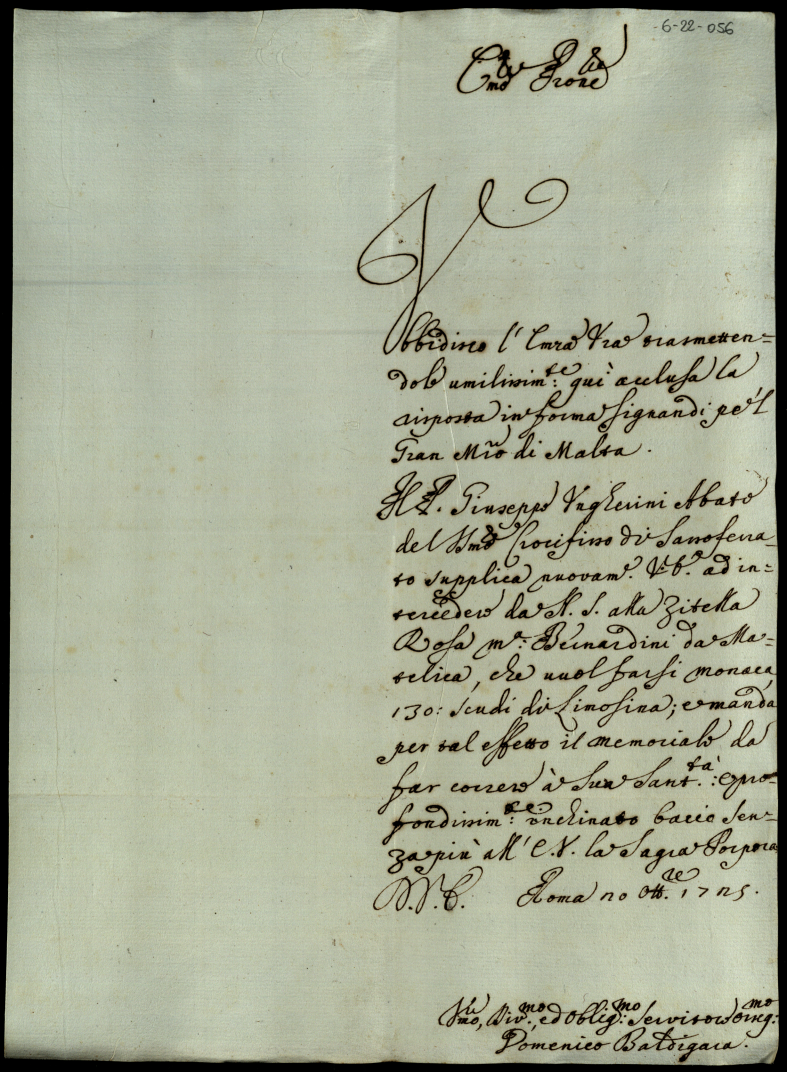 -6-22-056
Em.o e R.e Prone
Vbbidisco l'Emza Vra trasmetten=
dole umilissim.te: qui acclusa la
risposta in forma signandi pe 'l
Gran Mro di Malta.
Il P. Giuseppe Ungherini Abate
del SSmo Crocifisso di Sassoferra=
to supplica nuovam.e V.E. ad in=
tercedere da N. S. alla Zitella
Rosa M.a: Bernardini da Ma=
telica, che vuol farsi monaca,
130: scudi di Limosina; e manda
per tal effetto il memoriale da
far correre à Sua Sant.tà: e pro=
fondissim.te: inchinato bacio sen=
za più all' E.V. la Sagra Porpora
D.V.E. Roma 20 Ott.re 1725.
Vmo, Div.mo, ed Oblig.mo: Servitore Osseq.mo:
Domenico Baldigara.